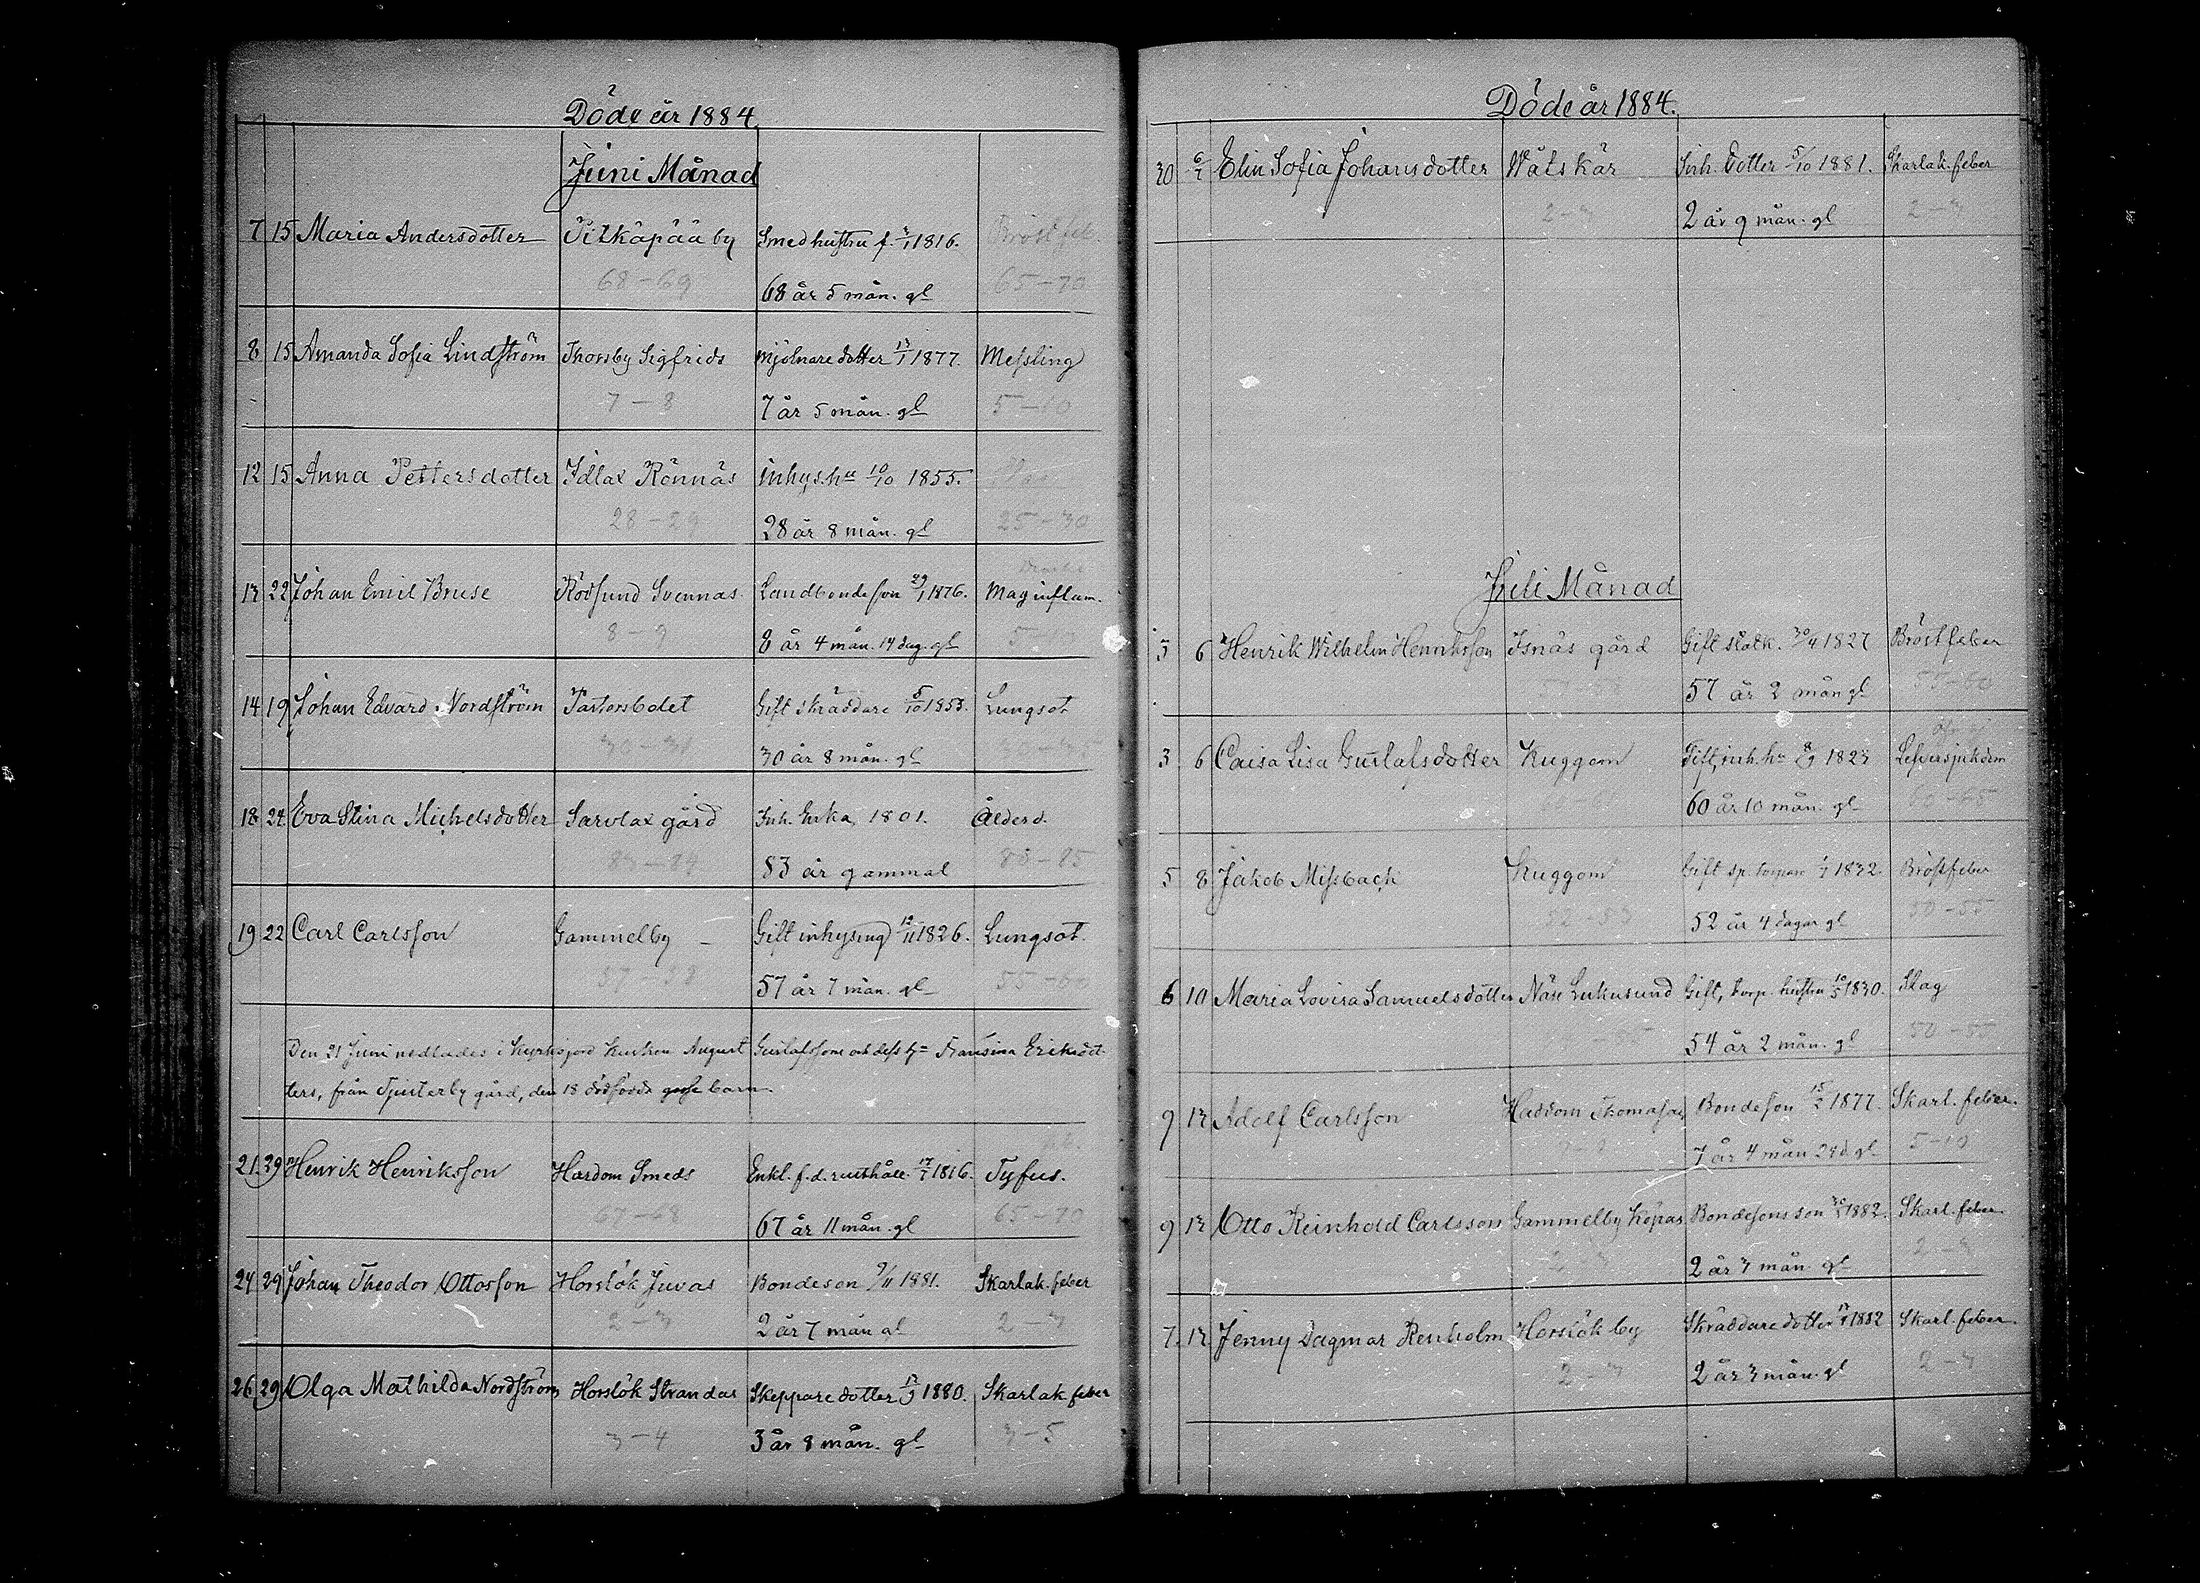 Döde år 1884
Juni Månad
7 15 Maria Andersdotter Pitkäpää by Smedhustru f. 3/1 1816. Bröstfeb.
68-69 68 år 5 mån. gl 65-70
8 15 Amanda Sofia Lindström Thorsby Sigfrids Mjölnaredotter 13/1 1877. Messling
7-8 7 år 5 mån. gl 5-10
12 15 Anna Pettersdotter Idlax Rönnäs inhys.hu 10/10 1855.
28-29 28 år 8 mån. gl 25-30
13 22 Johan Emil Bruse Rödsund Svennas Landbondeson 29/1 1876. Maginflam.
8-9 8 år 4 mån. 14 dag. gl 5-10
14 19 Johan Edvard Nordström Pastorsbolet Gift skräddare 5/10 1853. Lungsot
30-31 30 år 8 mån. gl 30-35
18 24 Eva Stina Michelsdotter Sarvlax gård Inh. Enka, 1801. Ålderd.
83-84 83 år gammal 80-85
19 22 Carl Carlsson Gammelby Gift inhysing 12/11 1826. Lungsot.
57-58 57 år 7 mån. gl 55-60
Den 21 Juni nedlades i kyrkojord kusken August Gustafssons och dess hu Fransina Eriksdot-
ters, från Tjusterby gård, den 18 dödfödda gosse barn.
21 29 Henrik Henriksson Hardom Smeds Enkl. f.d. rusthåll. 17/7 1816. Tyfus.
67-68 67 år 11 mån. gl 65-70
24 29 Johan Theodor Ottosson Horslök Juvas Bondeson 9/11 1881. Skarlak.feber
2-3 2 år 7 mån gl 2-3
26 29 Olga Mathilda Nordström Horslök Strandas Skeppare dotter 17/9 1880. Skarlak feber
3-4 3 år 8 mån. gl 3-5
Döde år 1884.
30 6/7 Elin Sofia Johansdotter Wåtskär Inh. Dotter 5/10 1881. Skarlak.feber
2-3 2 år 9 mån. gl 2-3
Juli Månad
3 6 Henrik Wilhelm Henriksson Isnäs gård Gift statk. 30/4 1827 Bröstfeber
57-58 57 år 2 mån gl 55-60
3 6 Caisa Lisa Gustafsdotter Kuggom Gift, inh.hu 8/9 1823 Lefversjukdom
60-61 60 år 10 mån. gl 60-65
5 8 Jakob Missbach Kuggom Gift sp. torpare 1/7 1832. Bröstfeber
52-53 52 år 4 dagar gl 50-55
6 10 Maria Lovisa Samuelsdotter Näse Lukusund Gift, torp. hustru 10/5 1830. Slag
54 år 2 mån. gl 50-55
9 13 Adolf Carlsson Haddom Thomasas Bondeson 15/2 1877. Skarl. feber.
7-8 7 år 4 mån 24 d. gl 5-10
9 13 Otto Reinhold Carlsson Gammelby Köpas Bondesons son 30/3 1882. Skarl. feber
2-3 2 år 3 mån gl 2-3
7. 13 Jenny Dagmar Renholm Horslök by Skräddaredotter 17/4 1882 Skarl. feber.
2-3 2 år 3 mån. gl 2-3